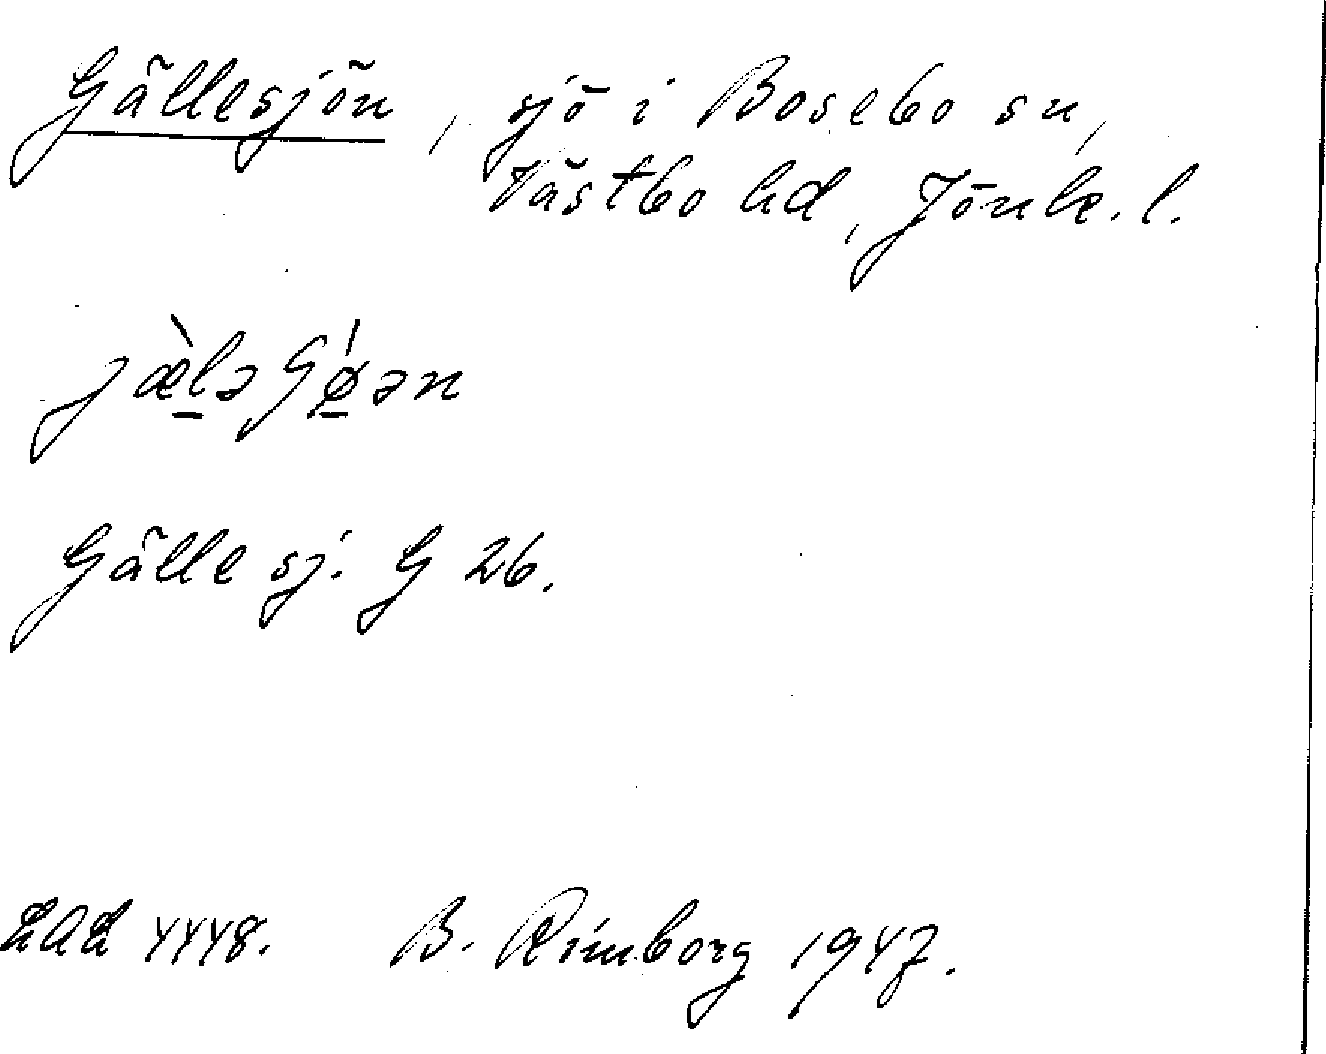 Gällesjön, sjö i Bosebo sn,
Västbo hd, Jönk. l.
jæ̀lə ɧǿən
Gälle sj. G 26.
LAL 4448. B. Rimborg 1947.